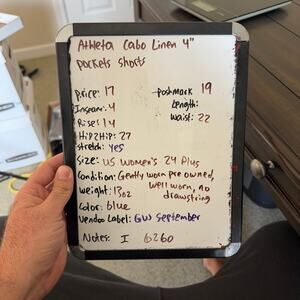 Athleta Cabo Linen 4"
pockets shorts
Price: 17
poshmark 19
Inseam: 4
Length:
Rise: 14
waist: 22
Hip2Hip: 27
stretch: yes
Size: US Women's 24 Plus
Condition: Gently worn pre owned,
well worn, no
drawstring
weight: 13oz
Color: blue
Vendoo Label: GW September
Notes: I 6260